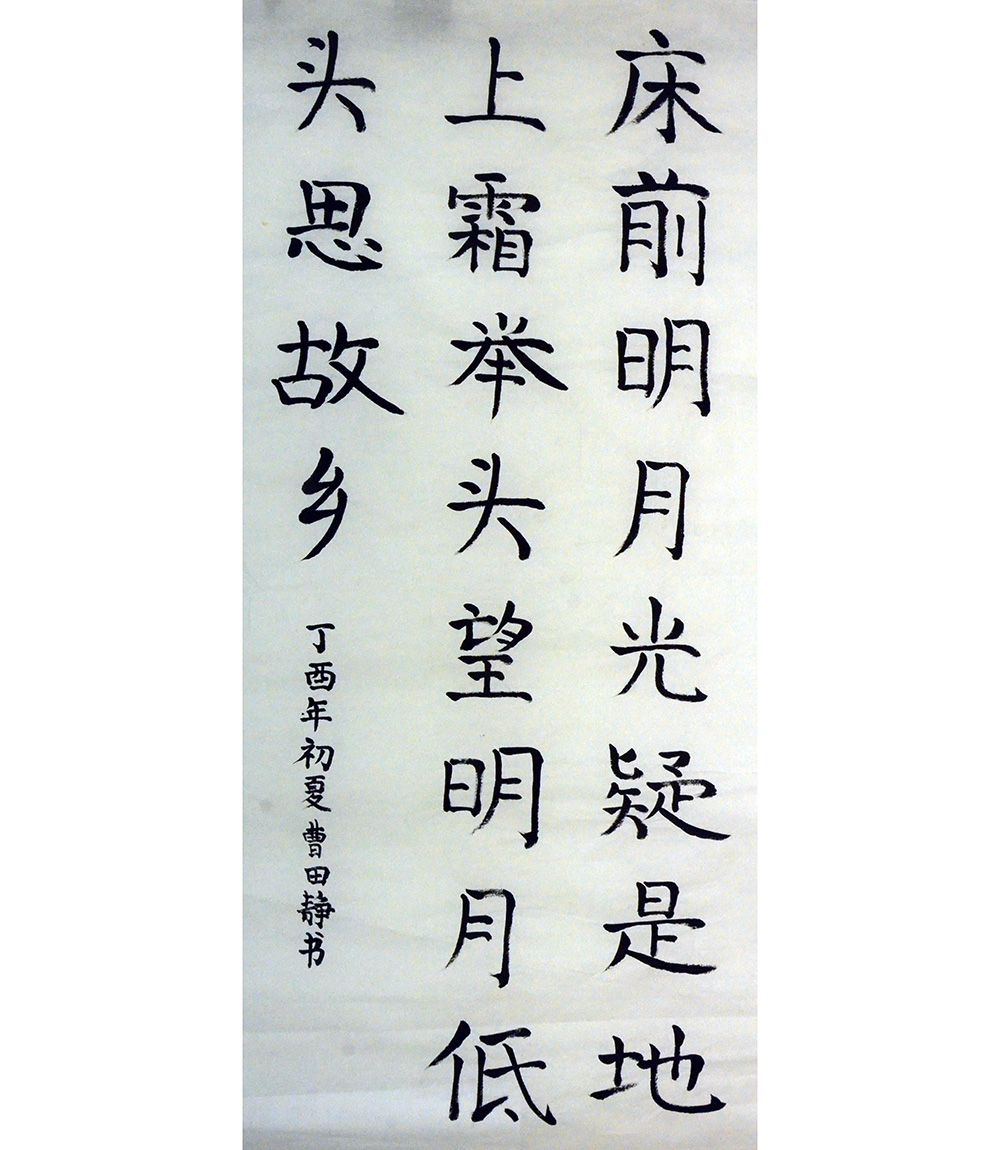 床前明月光疑是地
上霜举头望明月低
头思故乡
丁酉年初夏曹田静书